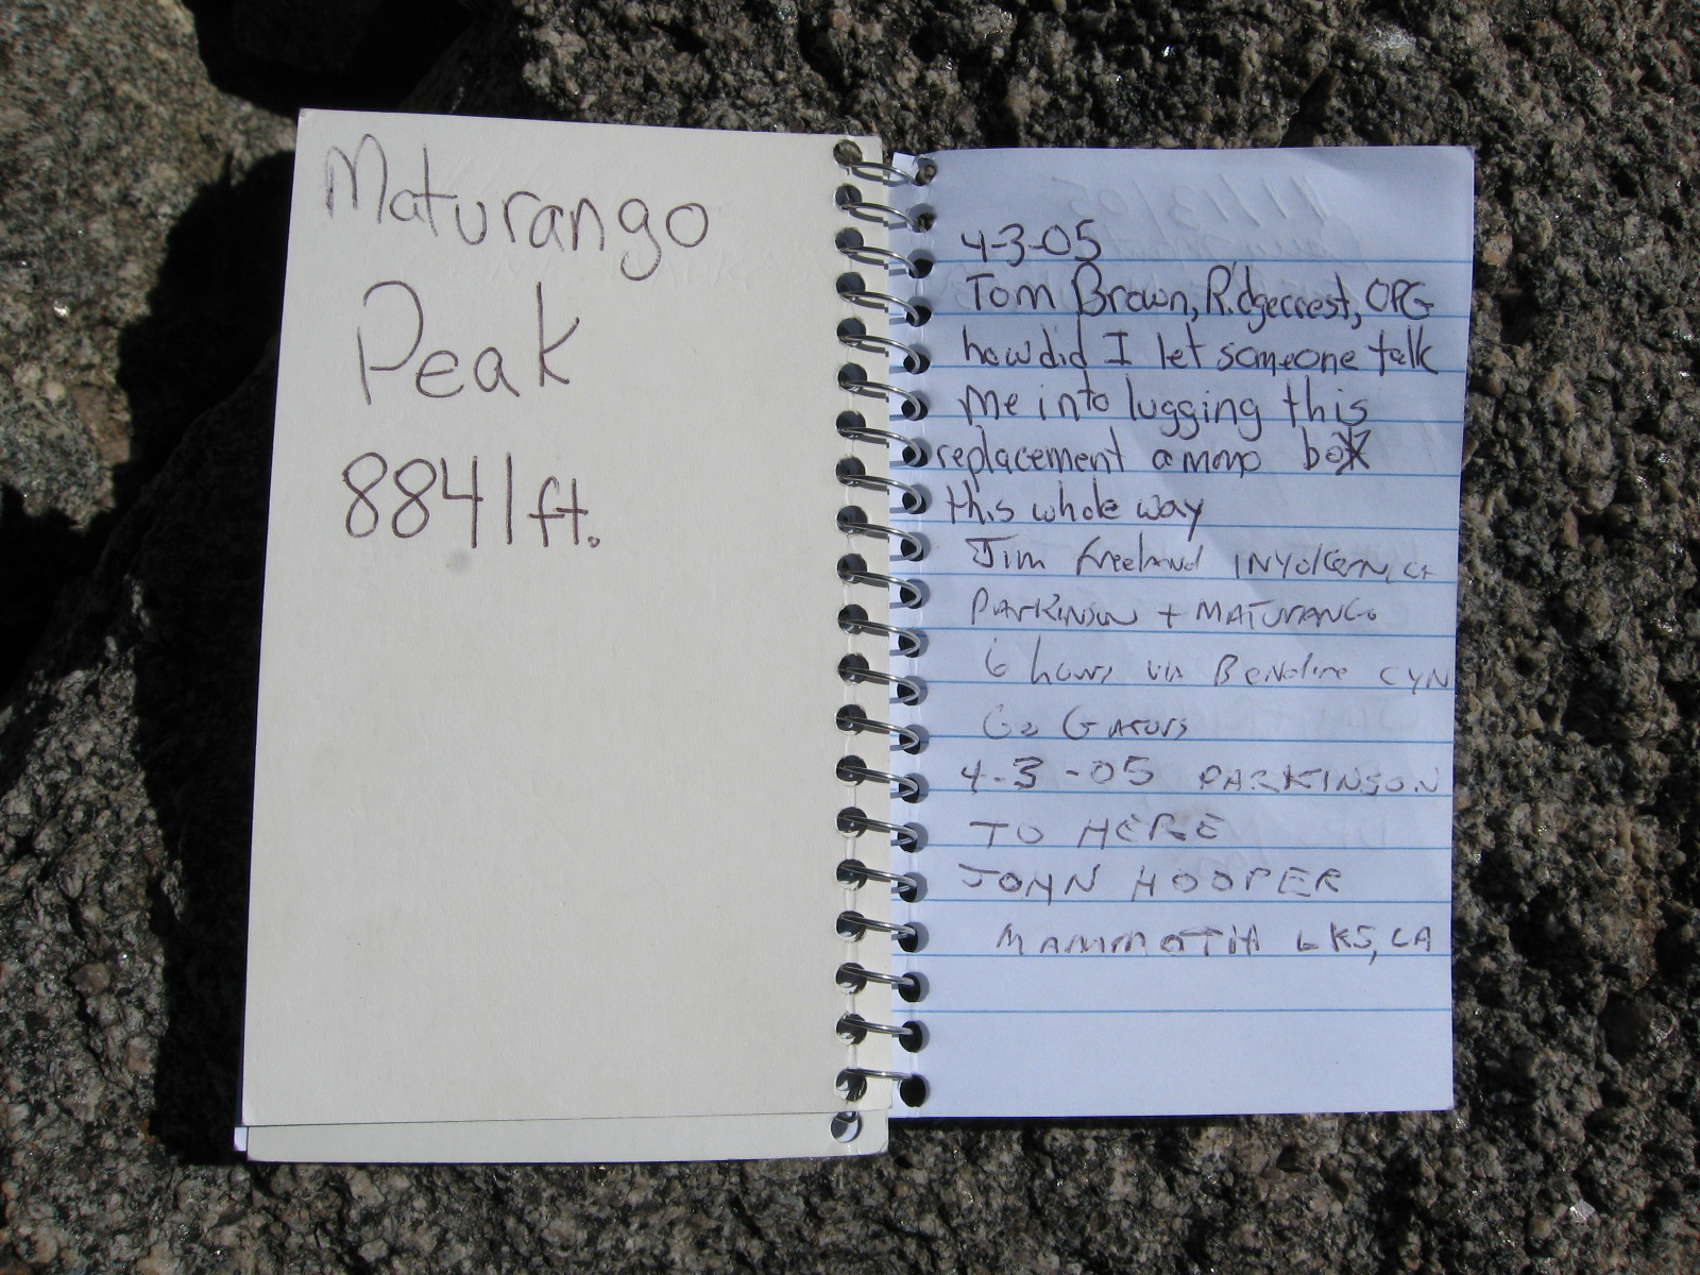 Maturango
Peak
8841 ft.
4-3-05
Tom Brown, Ridgecrest, OPG
how did I let someone talk
me into lugging this
replacement ammo box
this whole way
Jim Freeland INYOKERN, CA
PARKINSON + MATURANGO
6 hours via Bendire CYN
Go GATORS
4-3-05 PARKINSON
TO HERE
JOHN HOOPER
MAMMOTH LKS, CA